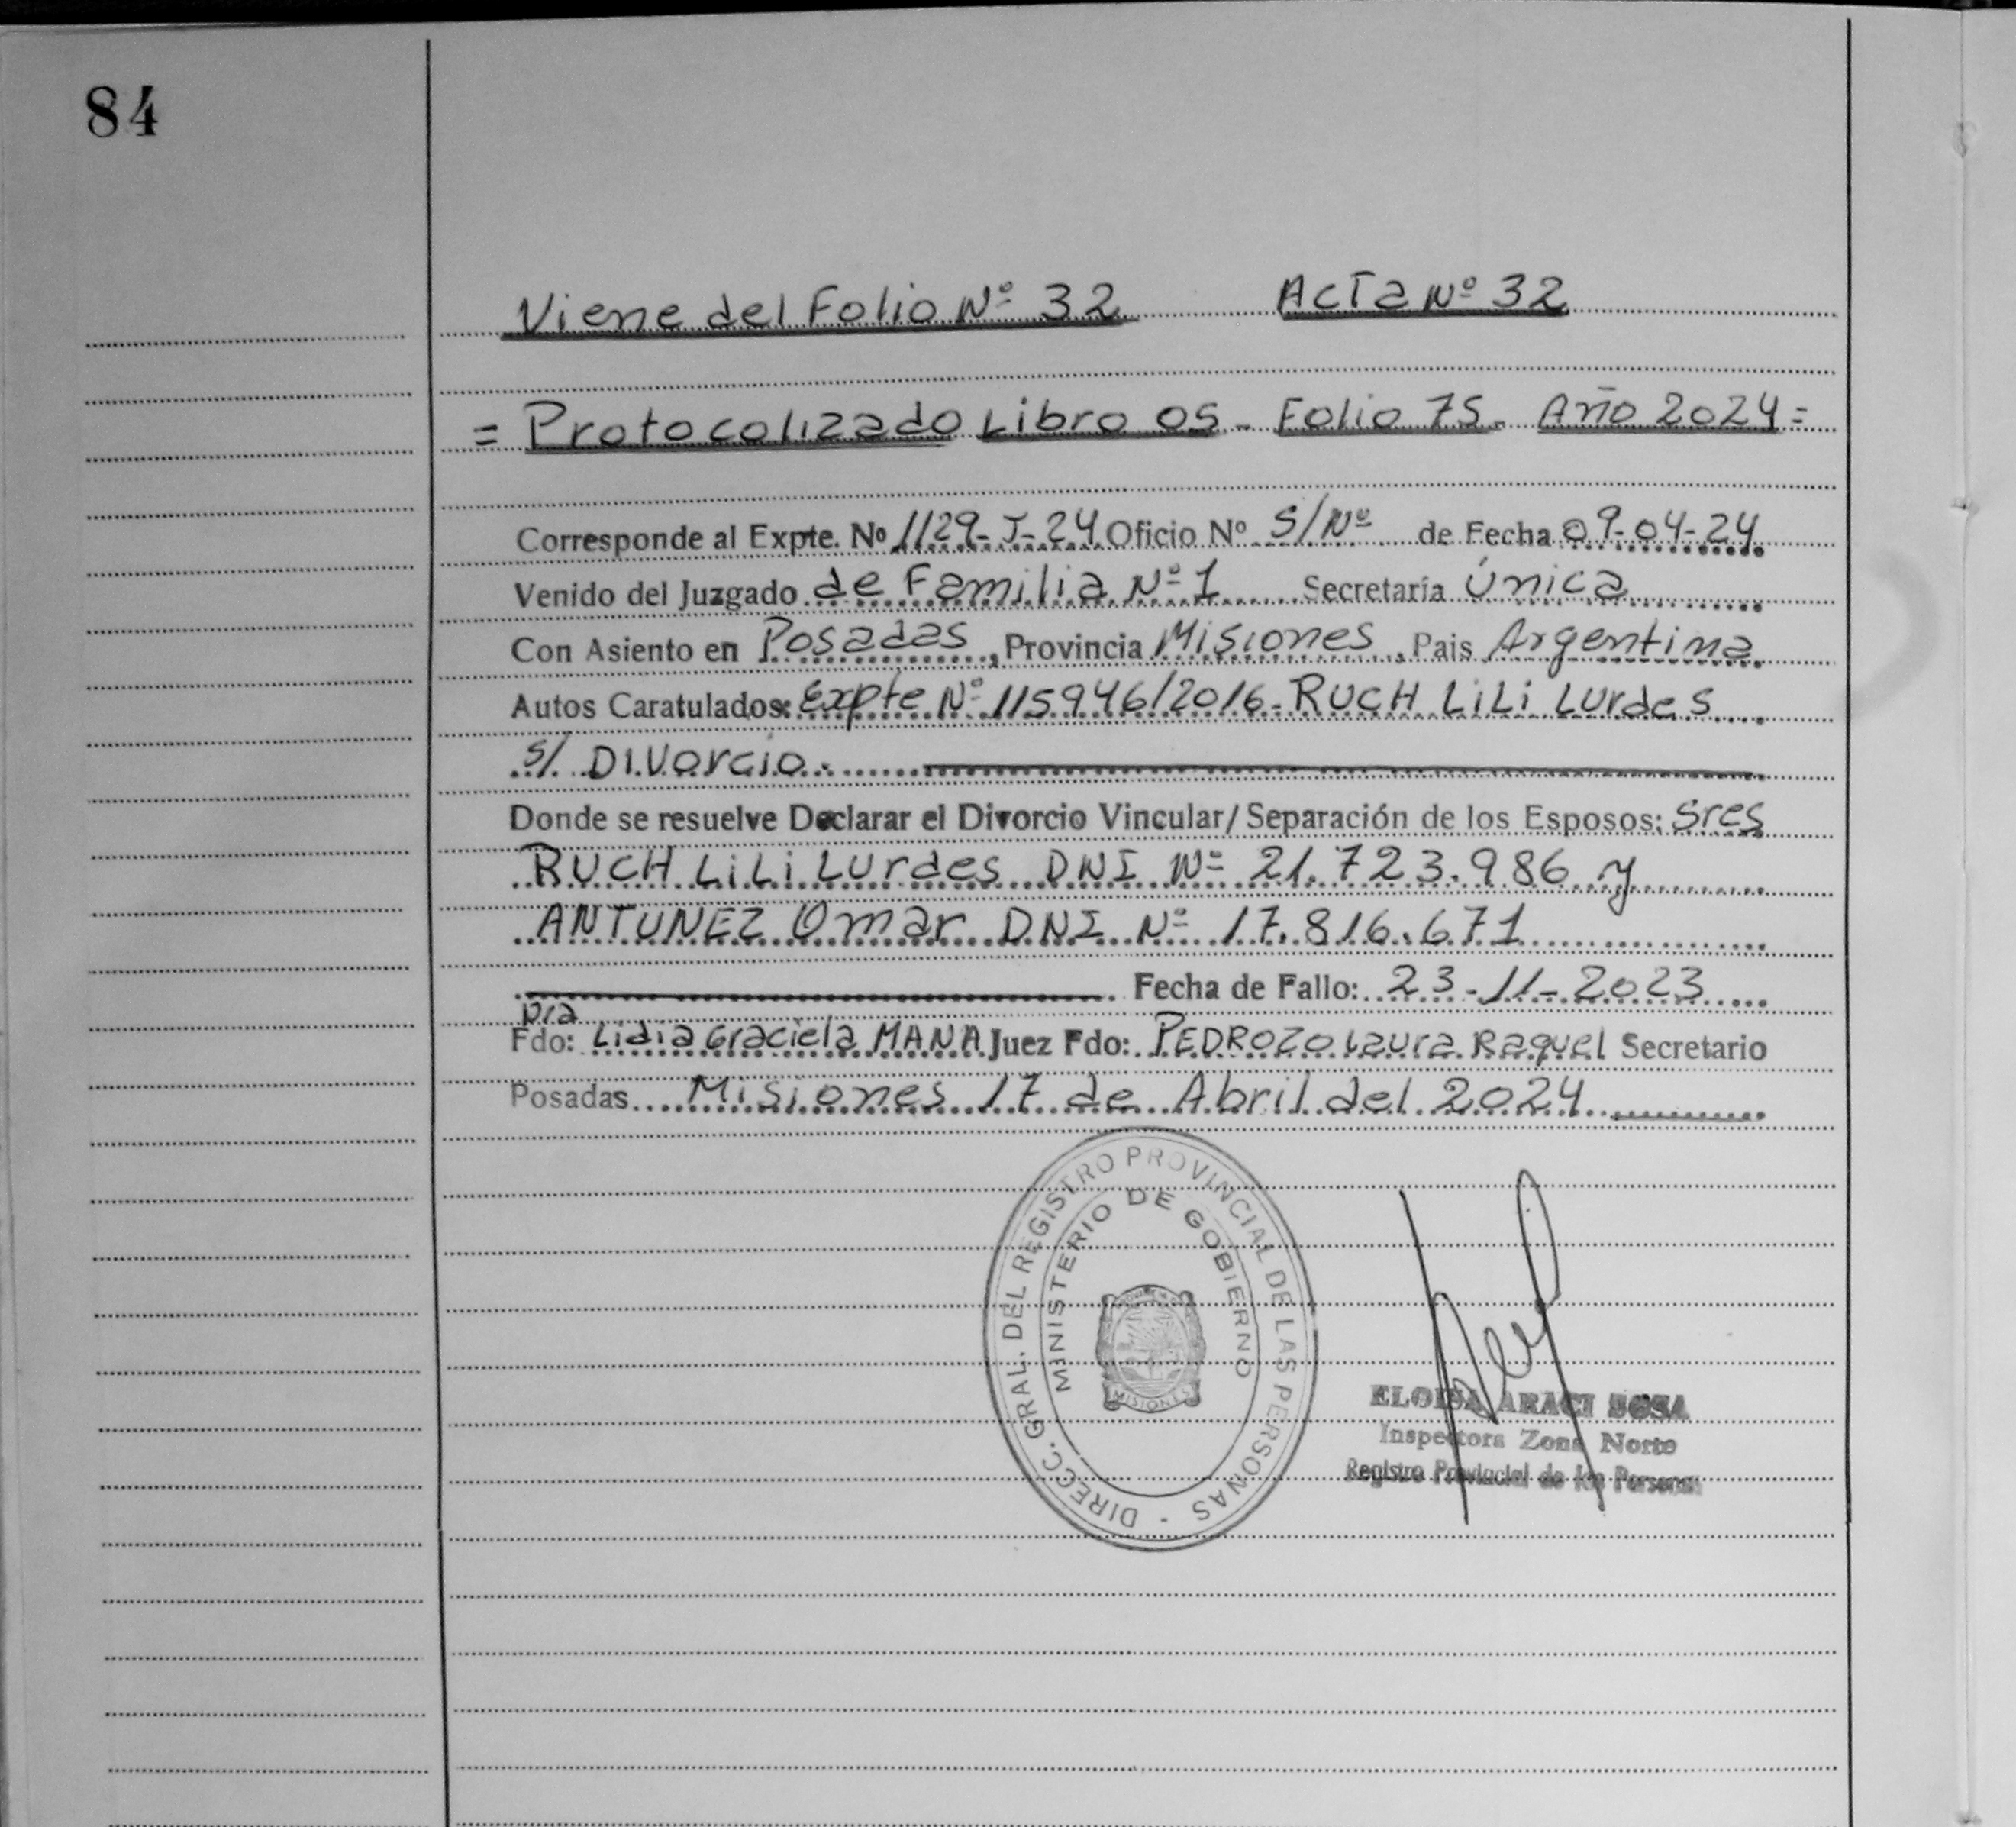 84
Viene del Folio Nº 32 Acta Nº 32
= Protocolizado Libro 05 - Folio 75 - Año 2024 =
Corresponde al Expte. Nº 1129-J-24 Oficio Nº S/Nº de Fecha 09-04-24
Venido del Juzgado de Familia Nº 1 Secretaría Única
Con Asiento en Posadas, Provincia Misiones, Pais Argentina
Autos Caratulados: Expte Nº 115946/2016- RUCH LiLi LUrdes
S/ DIVorcio.
Donde se resuelve Declarar el Divorcio Vincular/Separación de los Esposos: Sres
RUCH LiLi LUrdes DNI Nº 21.723.986 y
ANTUNEZ Omar DNI Nº 17.816.671
Fecha de Fallo: 23-11-2023
Dra
Fdo: Lidia Graciela MANA Juez Fdo: PEDROZO Laura Raquel Secretario
Posadas Misiones 17 de Abril del 2024
DIRECC. GRAL. DEL REGISTRO PROVINCIAL DE LAS PERSONAS -
MINISTERIO DE GOBIERNO
MISIONES
ELOISA ARACI SOSA
Inspectora Zona Norte
Registro Provincial de las Personas